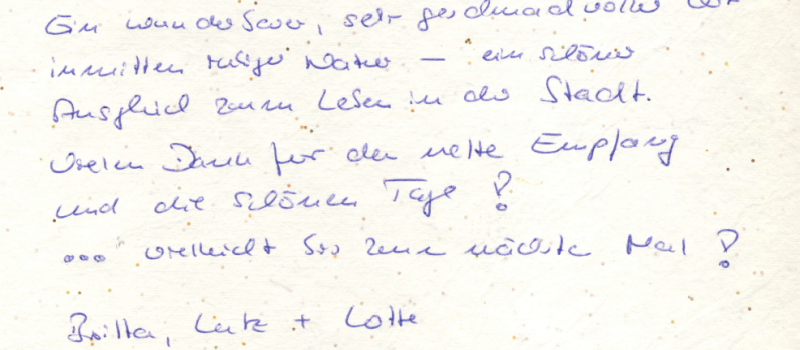 Ein wunderbarer, sehr geschmackvoller Ort
inmitten ruhiger Natur – ein schöner
Ausgleich zum Leben in der Stadt.
Vielen Dank für den nette Empfang
und die schönen Tage!
... vielleicht bis zum nächsten Mal!
Britta, Lutz + Lotte